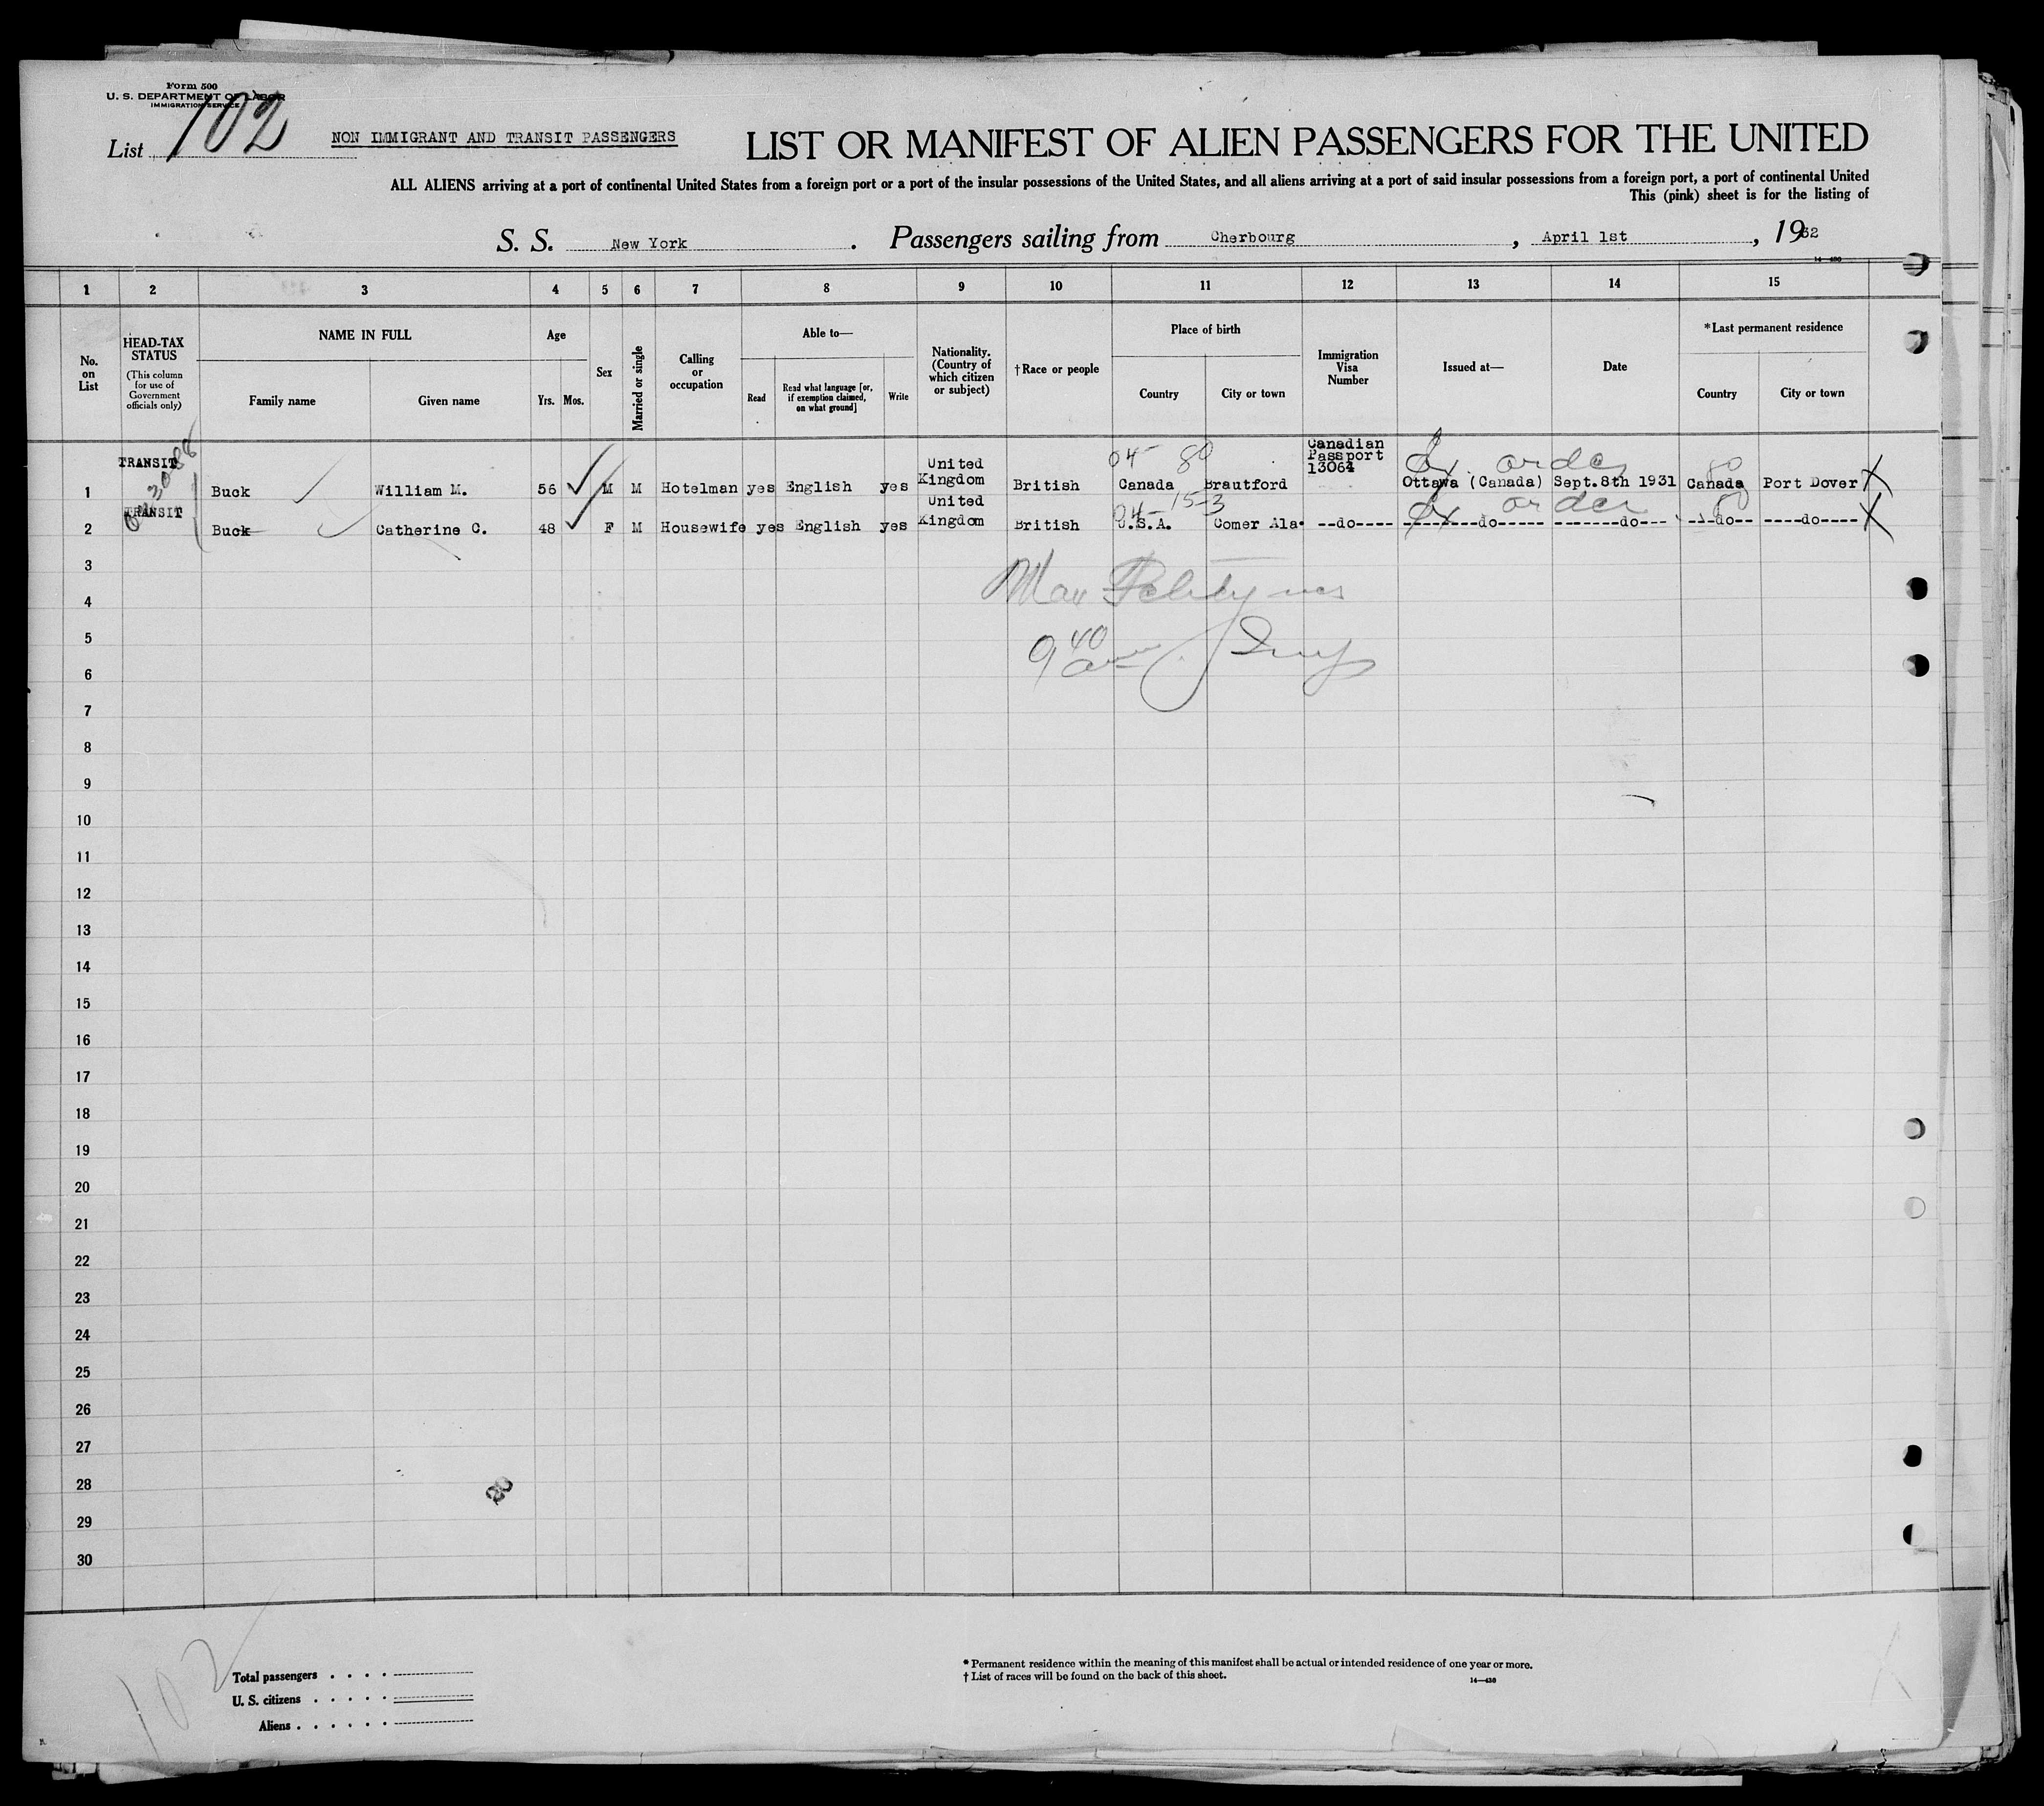 Form 500
U. S. DEPARTMENT OF LABOR
IMMIGRATION SERVICE
List 102
NON IMMIGRANT AND TRANSIT PASSENGERS
LIST OR MANIFEST OF ALIEN PASSENGERS FOR THE UNITED
ALL ALIENS arriving at a port of continental United States from a foreign port or a port of the insular possessions of the United States, and all aliens arriving at a port of said insular possessions from a foreign port, a port of continental United
This (pink) sheet is for the listing of
S. S. New York. Passengers sailing from Cherbourg, April 1st, 1932
14—430
1 2 3 4 5 6 7 8 9 10 11 12 13 14 15
No. on List
HEAD-TAX STATUS
(This column for use of Government officials only)
NAME IN FULL
Family name Given name
Age
Yrs. Mos.
Sex
Married or single
Calling or occupation
Able to—
Read Read what language [or, if exemption claimed, on what ground] Write
Nationality. (Country of which citizen or subject)
†Race or people
Place of birth
Country City or town
Immigration Visa Number
Issued at—
Date
*Last permanent residence
Country City or town
04- 80 Ex. order 80
1 TRANSIT Buck William M. 56 M M Hotelman yes English yes United Kingdom British Canada Brautford Canadian Passport 13064 Ottawa (Canada) Sept.8th 1931 Canada Port Dover X
04- 15-3 Ex order 80
2 TRANSIT Buck Catherine C. 48 F M Housewife yes English yes United Kingdom British U.S.A. Comer Ala. --do---- --------do----- -------do--- ---do-- ----do---- X
3
4
9 40 am
5
6
7
8
9
10
11
12
13
14
15
16
17
18
19
20
21
22
23
24
25
26
27
28
29
30
102
Total passengers . . . .
U. S. citizens . . . . .
Aliens . . . . . .
* Permanent residence within the meaning of this manifest shall be actual or intended residence of one year or more.
† List of races will be found on the back of this sheet.
14—430